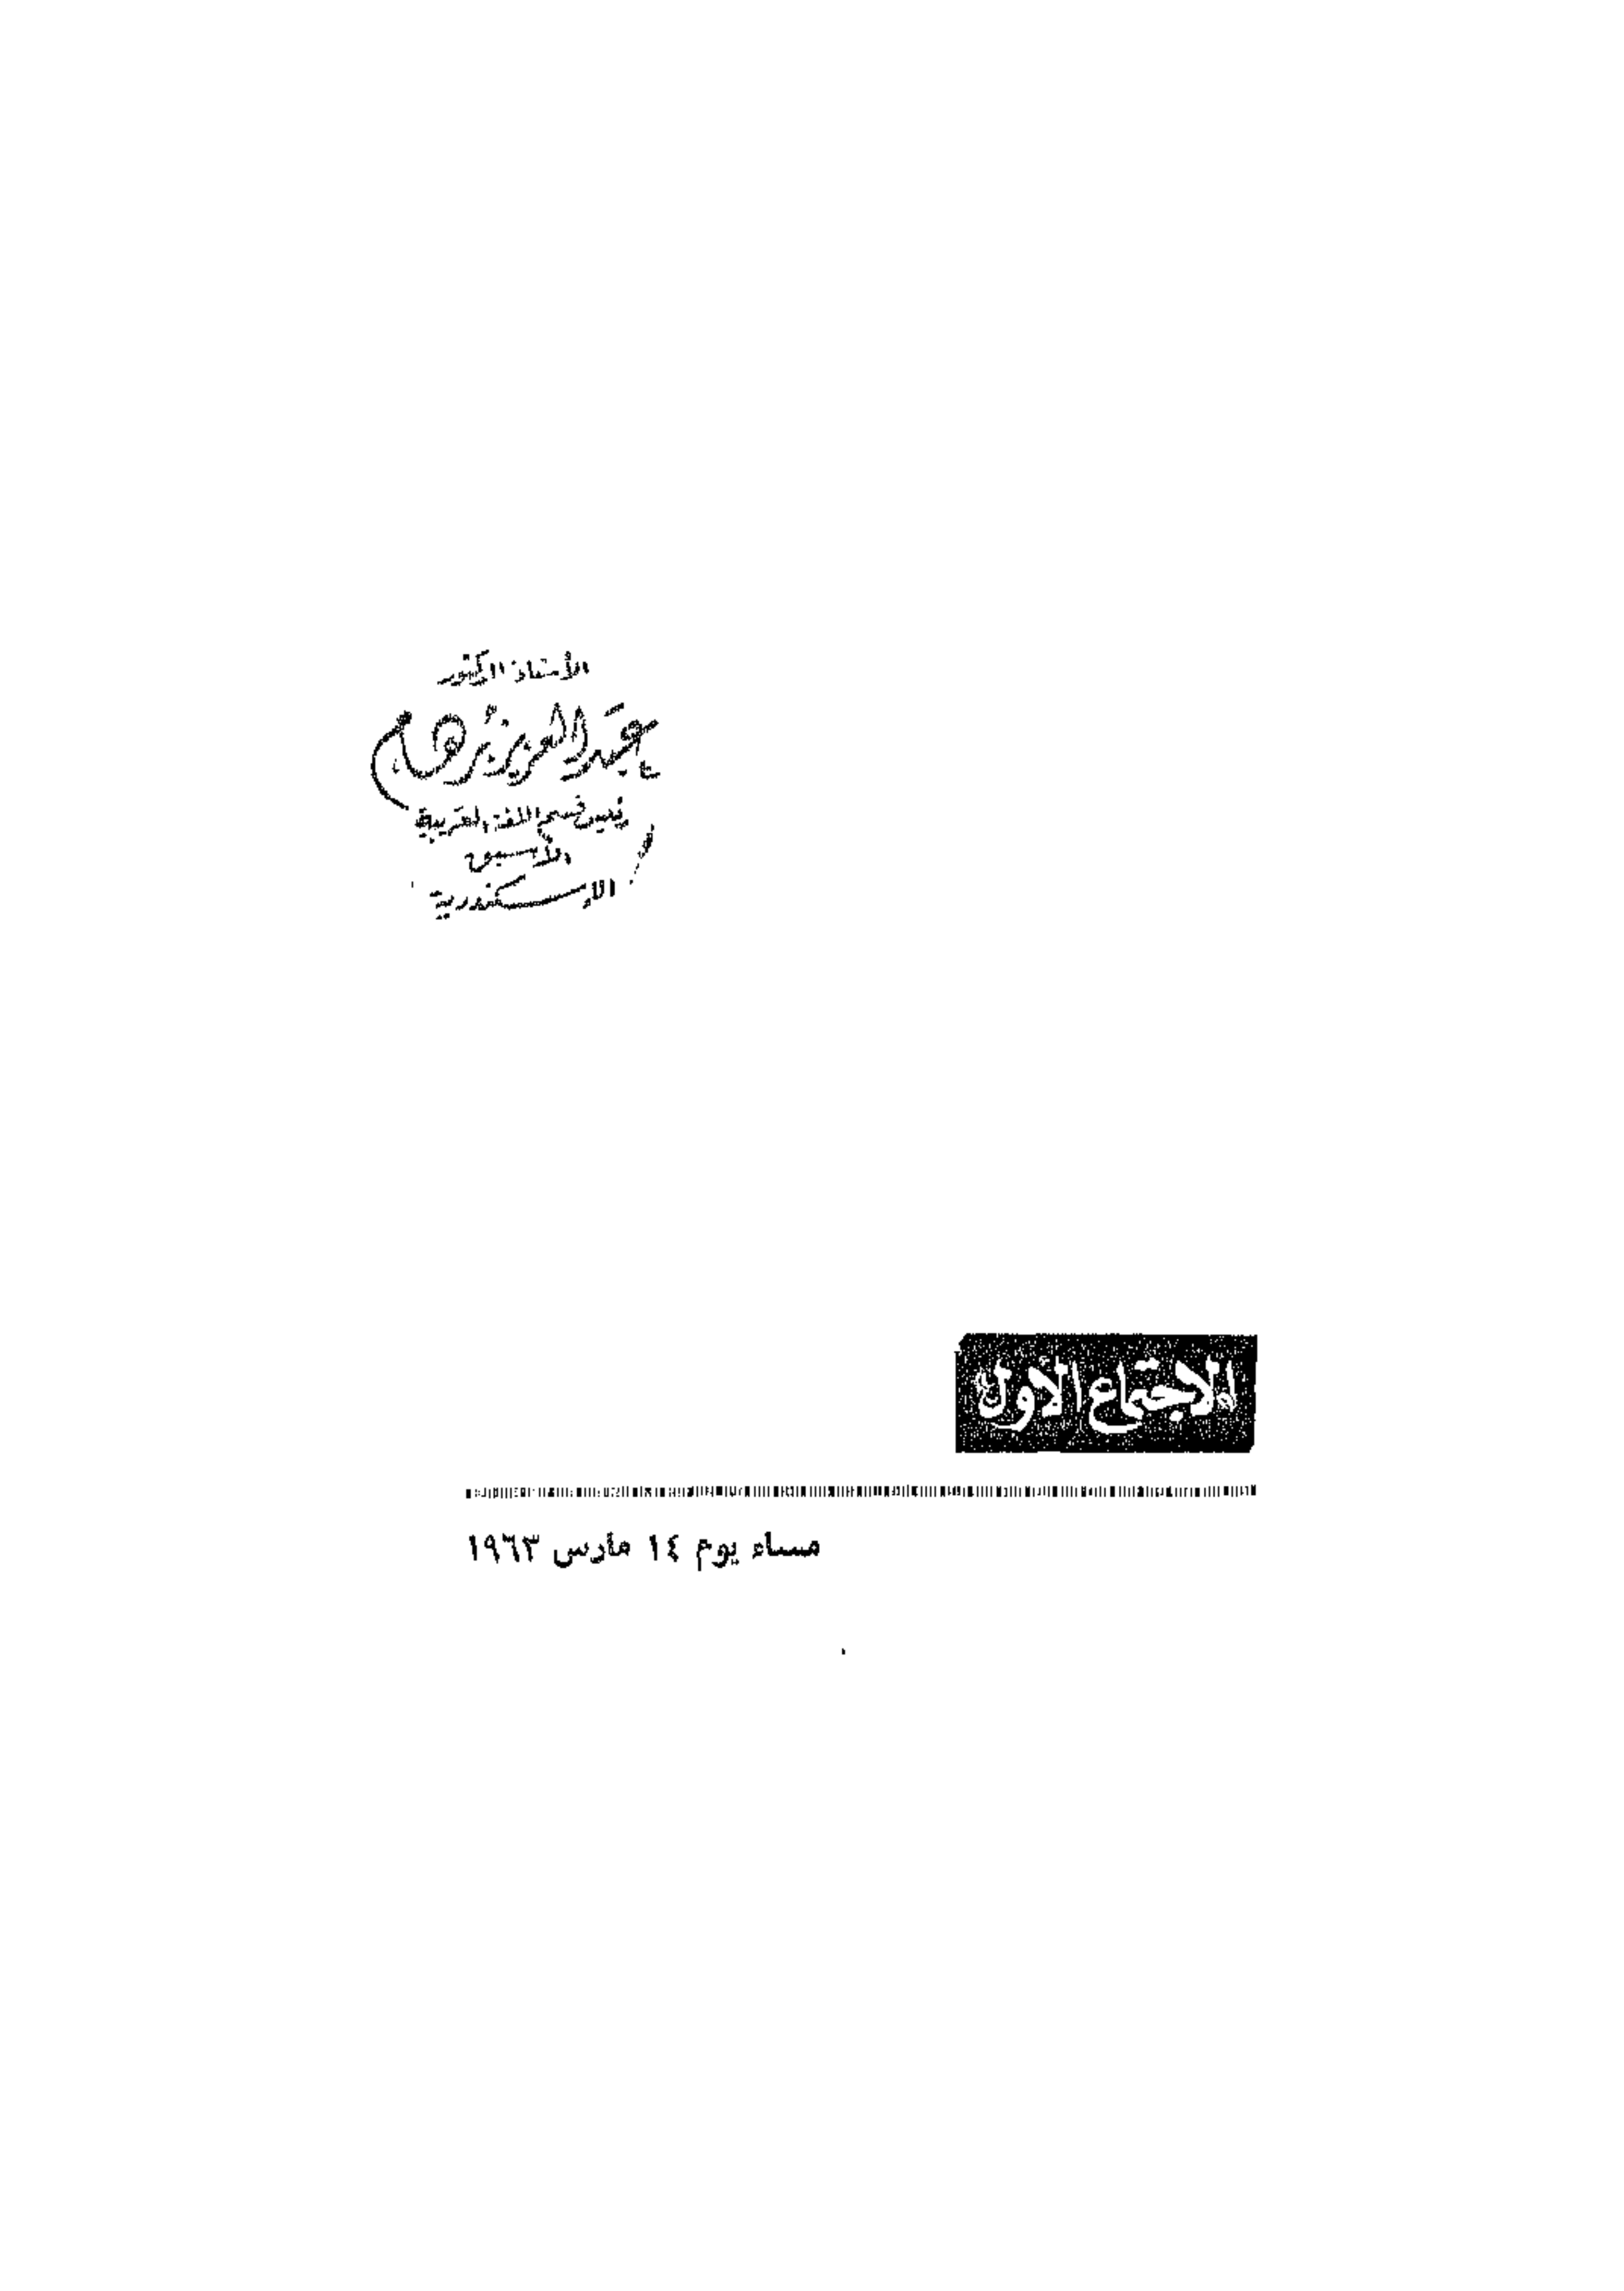 الأستاذ الدكتور
عبد العزيز برهام
رئيس قسم اللغة العربية
الأسبق
الإسكندرية
الاجتماع الأول
مساء يوم ١٤ مارس ١٩٦٣